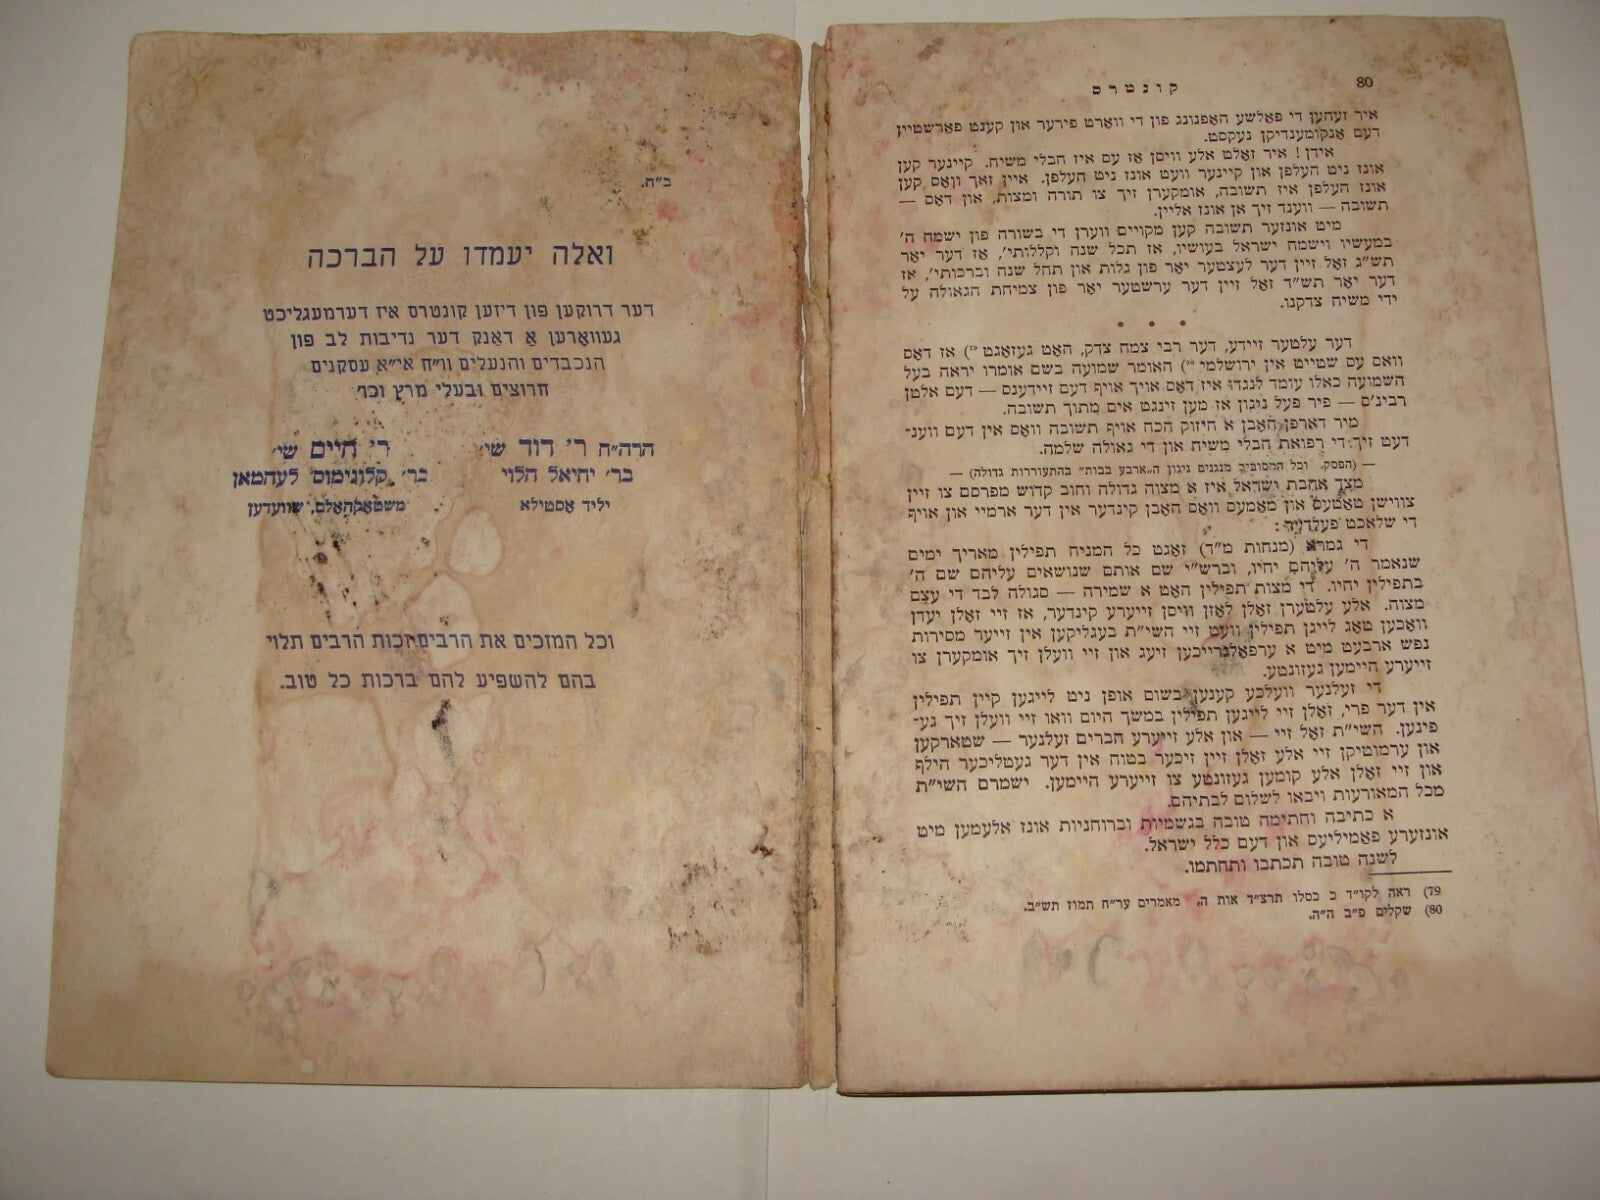 80
קונטרס
איר זעהען די פאלשע האפנונג פון די ווארט פירער און קענט פארשטיין
דעם אנקומענדיקן נעקסט.
אידן! איר זאלט אלע וויסן אז עס איז חבלי משיח. קיינער קען
אונז ניט העלפן און קיינער וועט אונז ניט העלפן. איין זאך וואס קען
אונז העלפן איז תשובה, אומקערן זיך צו תורה ומצות, און דאס —
תשובה — ווענד זיך אן אונז אליין.
מיט אונזער תשובה קען מקויים ווערן די בשורה פון ישמח ה'
במעשיו וישמח ישראל בעושיו, אז תכל שנה וקללותי', אז דער יאר
תש"ג זאל זיין דער לעצטער יאר פון גלות און תחל שנה וברכותי', אז
דער יאר תש"ד זאל זיין דער ערשטער יאר פון צמיחת הגאולה על
ידי משיח צדקנו.
• • •
דער עלטער זיידע, דער רבי צמח צדק, האט געזאגט (79 אז דאס
וואס עם שטייט אין ירושלמי (80 האומר שמועה בשם אומרו יראה בעל
השמועה כאלו עומד לנגדו איז דאס אויך אויף דעם זיידענס — דעם אלטן
רבינ'ס — פיר פעל ניגון אז מען זינגט אים מתוך תשובה.
מיר דארפן האבן א חיזוק הכח אויף תשובה וואס אין דעם ווענ־
דעט זיך די רפואת חבלי משיח און די גאולה שלמה.
— (הפסק. וכל המסובים מנגנים ניגון ה„ארבע בבות" בהתעוררות גדולה) —
מצד אהבת ישראל איז א מצוה גדולה וחוב קדוש מפרסם צו זיין
צווישן טאטעס און מאמעס וואס האבן קינדער אין דער ארמיי און אויף
די שלאכט פעלדער:
די גמרא (מנחות מ"ד) זאגט כל המניח תפילין מאריך ימים
שנאמר ה' עליהם יחיו, וברש"י שם אותם שנושאים עליהם שם ה'
בתפילין יחיו. די מצות תפילין האט א שמירה — סגולה לבד די עצם
מצוה. אלע עלטערן זאלן לאזן וויסן זייערע קינדער, אז זיי זאלן יעדן
וואכען טאג לייגן תפילין וועט זיי השי"ת בעגליקען אין זייער מסירות
נפש ארבעט מיט א ערפאלגרייכען זיעג און זיי וועלן זיך אומקערן צו
זייערע היימען געזונטע.
די זעלנער וועלכע קענען בשום אופן ניט לייגען קיין תפילין
אין דער פרי, זאלן זיי לייגען תפילין במשך היום וואו זיי וועלן זיך גע־
פינען. השי"ת זאל זיי — און אלע זייערע חברים זעלנער — שטארקען
און ערמוטיקן זיי אלע זאלן זיין זיכער בטוח אין דער געטליכער הילף
און זיי זאלן אלע קומען געזונטע צו זייערע היימען. ישמרם השי"ת
מכל המאורעות ויבאו לשלום לבתיהם.
א כתיבה וחתימה טובה בגשמיות וברוחניות אונז אלעמען מיט
אונזערע פאמיליעס און דעם כלל ישראל.
לשנה טובה תכתבו ותחתמו.
79) ראה לקו"ד כ כסלו תרצ"ד אות ה, מאמרים ער"ח תמוז תש"ב.
80) שקלים פ"ב ה"ה.
ב"ה.
ואלה יעמדו על הברכה
דער דרוקען פון דיזען קונטרס איז דערמעגליכט
געווארען א דאנק דער נדיבות לב פון
הנכבדים והנעלים וו"ח אי"א עסקנים
חרוצים ובעלי מרץ וכו'
הרה"ח ר' דוד שי' ר' חיים שי'
בר' יחיאל הלוי בר' קלונימוס לעהמאן
יליד אסטילא משטאקהאלם, שוועדען
וכל המזכים את הרבים זכות הרבים תלוי
בהם להשפיע להם ברכות כל טוב.